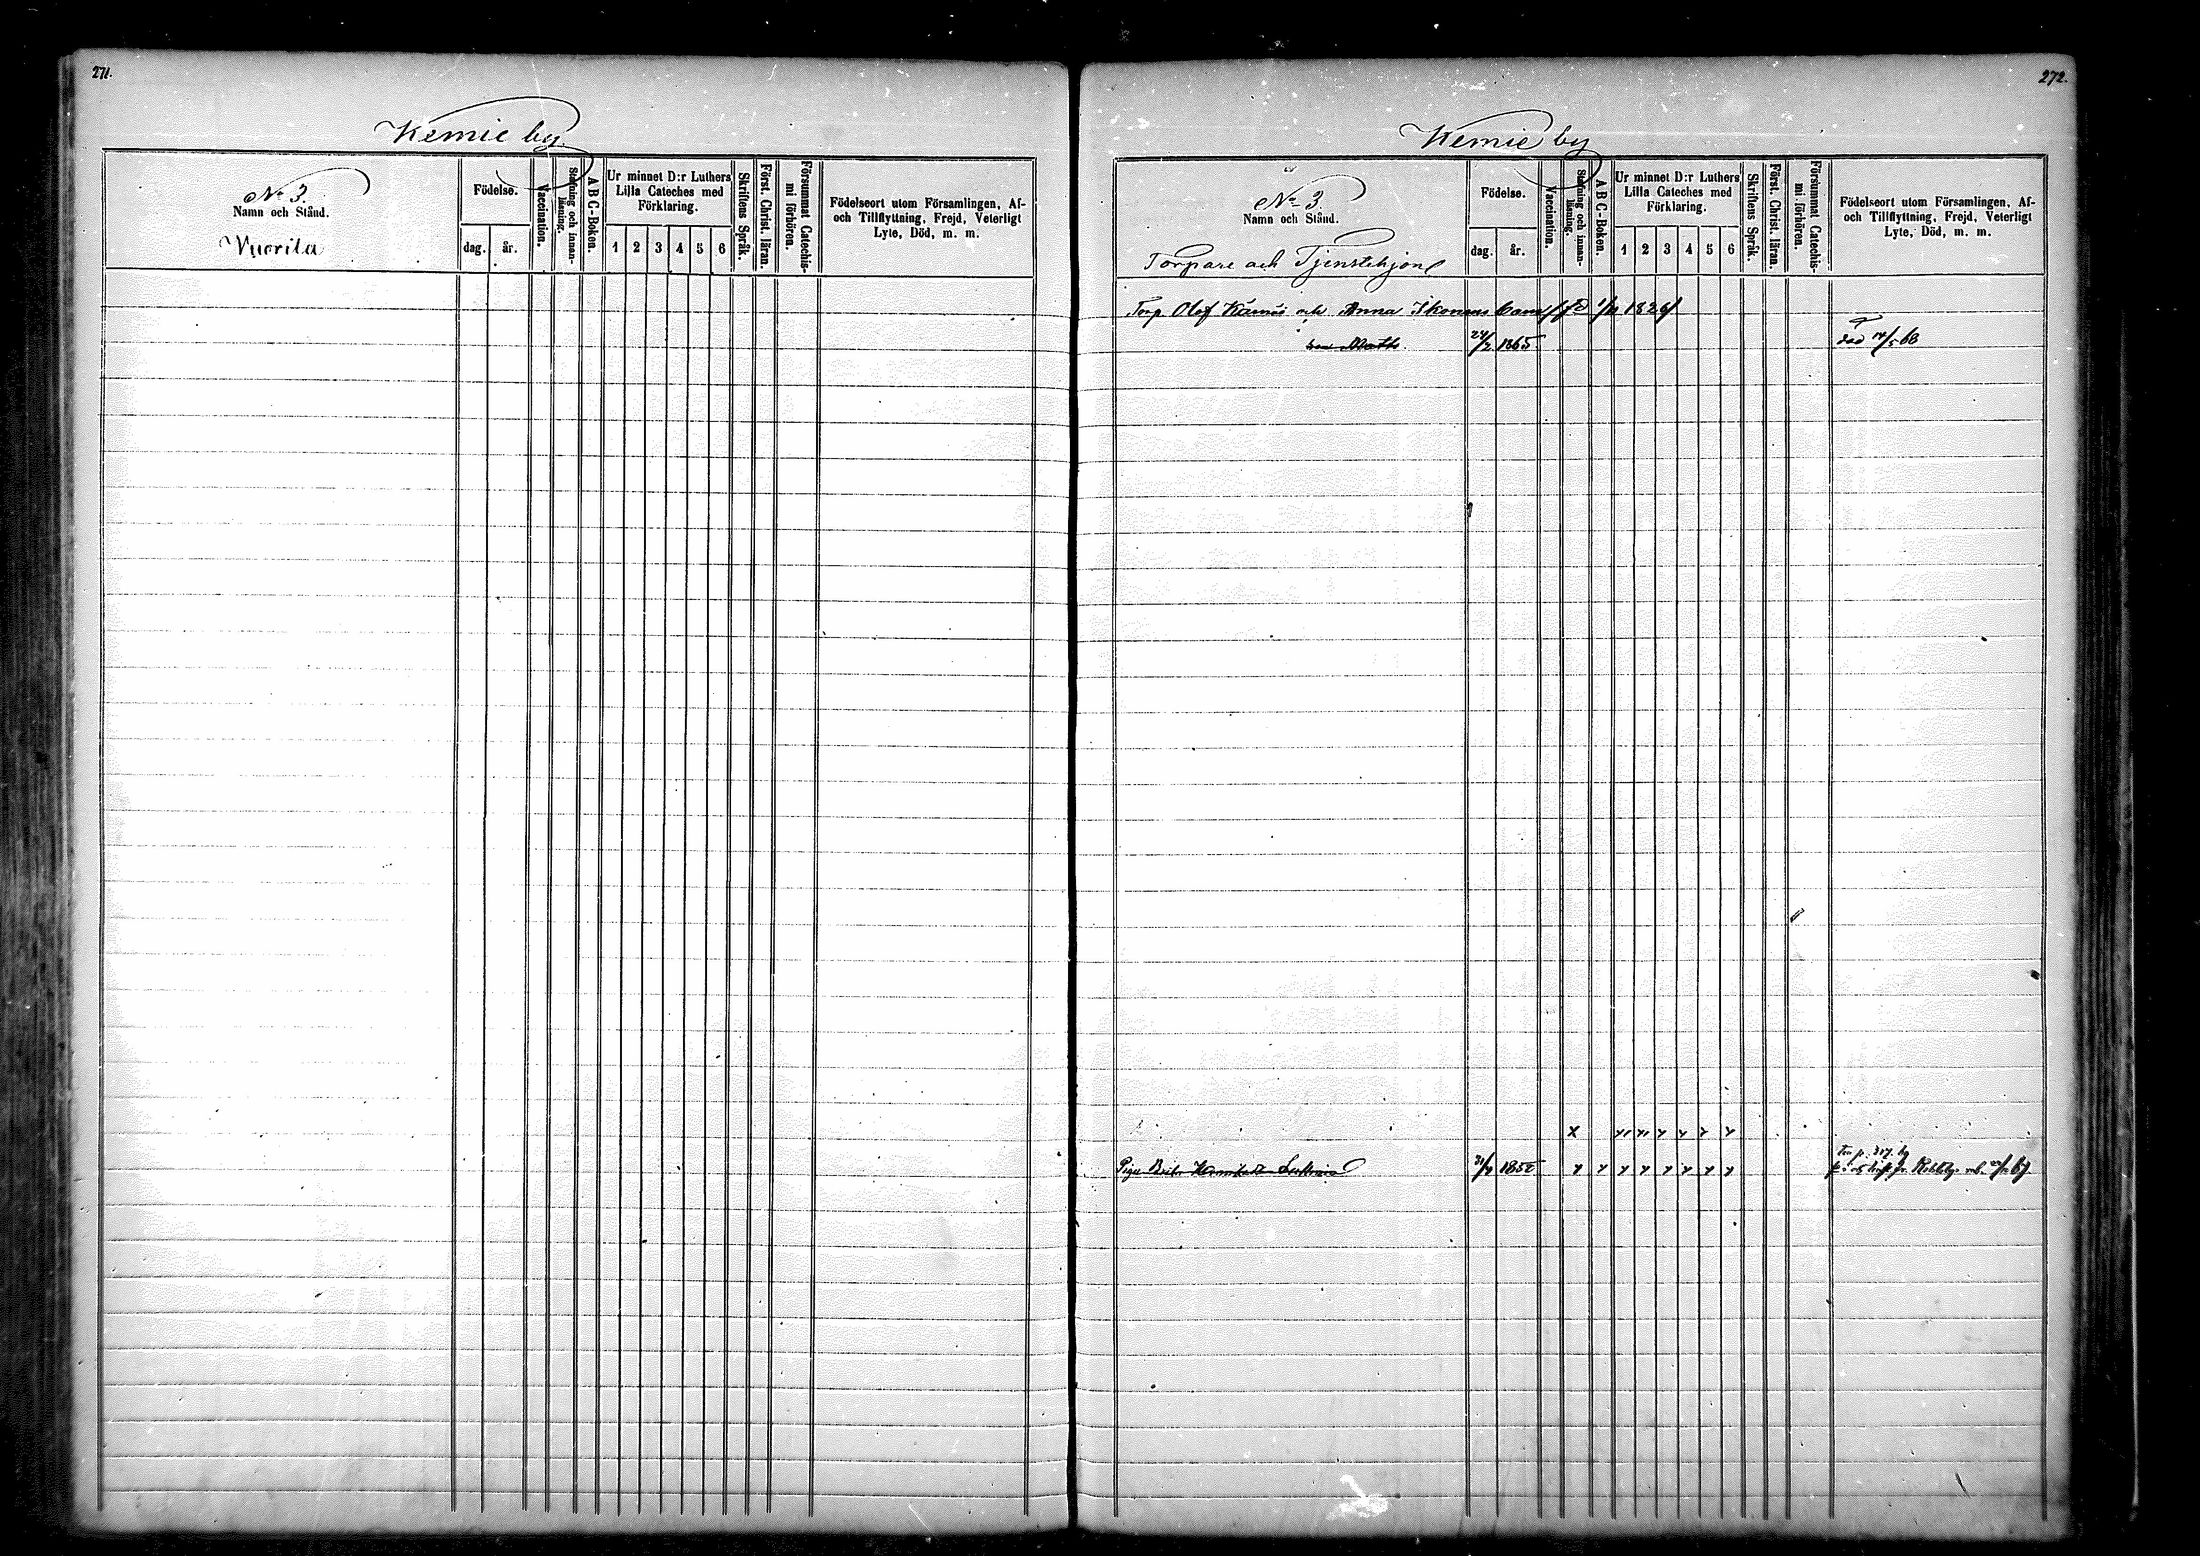 271.
Kemie by
No 3.
Namn och Stånd.
Vuorila
Födelse.
dag.
år.
Vaccination.
Stafning och innan-
läsning.
A B C-Boken.
Ur minnet D:r Luthers
Lilla Cateches med
Förklaring.
1 2 3 4 5 6
Skriftens Språk.
Först. Christ. läran.
Försummat Catechis-
mi förhören.
Födelseort utom Församlingen, Af-
och Tillflyttning, Frejd, Veterligt
Lyte, Död, m. m.
272.
Kemie by
No 3.
Namn och Stånd.
Torpare och Tjenstehjon
Födelse.
dag.
år.
Vaccination.
Stafning och innan-
läsning.
A B C-Boken.
Ur minnet D:r Luthers
Lilla Cateches med
Förklaring.
1 2 3 4 5 6
Skriftens Språk.
Först. Christ. läran.
Försummat Catechis-
mi förhören.
Födelseort utom Församlingen, Af-
och Tillflyttning, Frejd, Veterligt
Lyte, Död, m. m.
Torp. Olof och Anna Ikonens barn
son Matts. 1865 död 68
Piga 1852 67